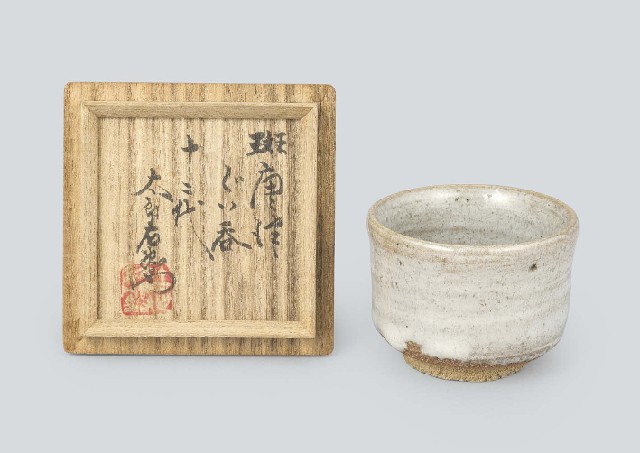 斑唐津
ぐい呑
十三代
太郎右衛門